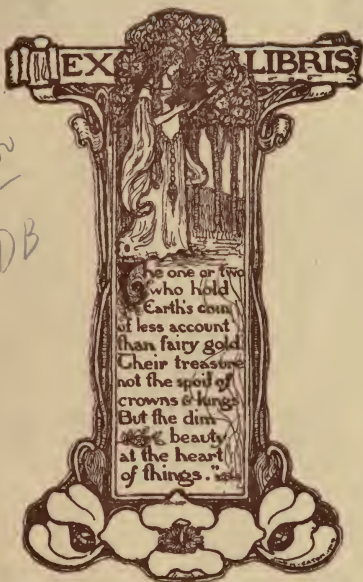 EX LIBRIS
DB
The one or two
who hold
Earth's coin
of less account
than fairy gold
Their treasure
not the spoil of
crowns & kings
But the dim
beauty
at the heart
of things."